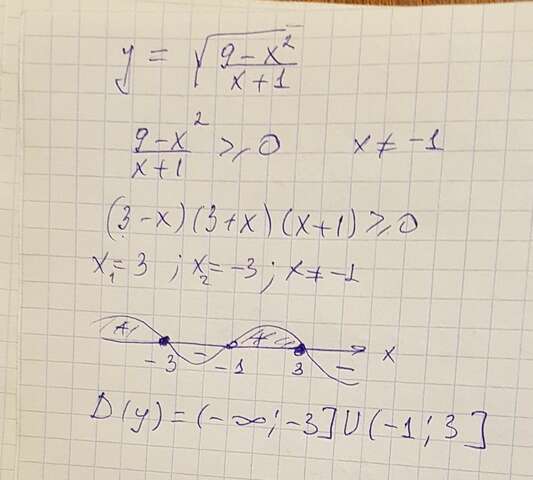 y = √((9-x²)/(x+1))
(9-x²)/(x+1) ≥ 0 x ≠ -1
(3-x)(3+x)(x+1) ≥ 0
x₁ = 3 ; x₂ = -3 ; x ≠ -1
+ - + -
-3 -1 3 x
D(y) = (-∞; -3] ∪ (-1; 3]